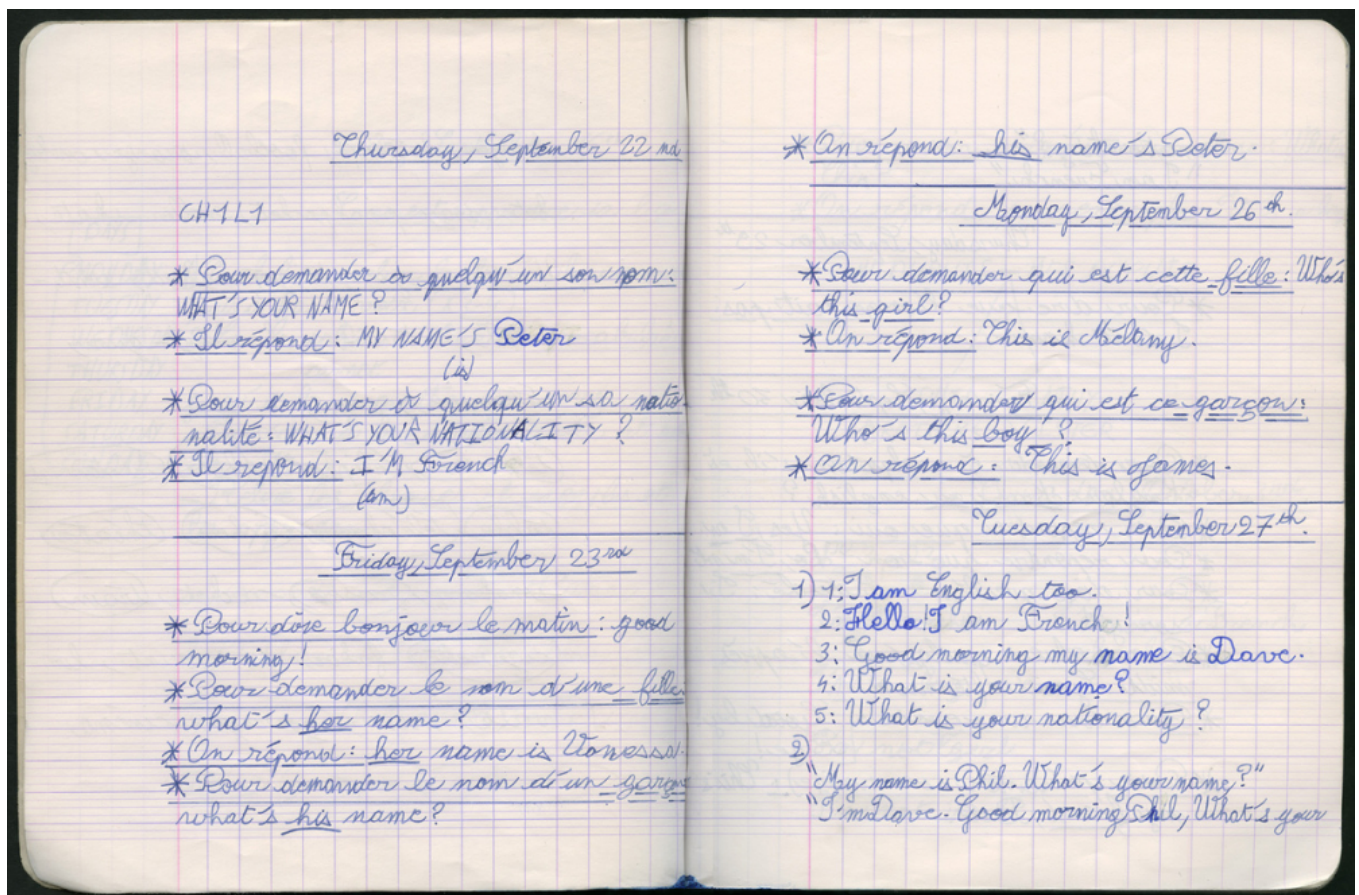 Thursday, September 22 nd
CH1L1
* Pour demander à quelqu'un son nom:
WHAT'S YOUR NAME ?
* Il répond : MY NAME'S Peter
(is)
* Pour demander à quelqu'un sa natio
nalité : WHAT'S YOUR NATIONALITY ?
* Il répond : I'M French
(am)
Friday, September 23rd
* Pour dire bonjour le matin : good
morning !
* Pour demander le nom d'une fille
what's her name ?
* On répond : her name is Vanessa.
* Pour demander le nom d'un garçon
what's his name ?
* On répond : his name's Peter.
Monday, September 26 th.
* Pour demander qui est cette fille : Who's
this girl ?
* On répond : This is Mélany.
* Pour demander qui est ce garçon :
Who's this boy ?
* On répond : This is James.
Tuesday, September 27 th.
1) 1: I am English too.
2: Hello! I am French !
3: Good morning my name is Dave.
4: What is your name ?
5: What is your nationality ?
2)
"My name is Phil. What's your name ?"
"I'm Dave. Good morning Phil, What's your